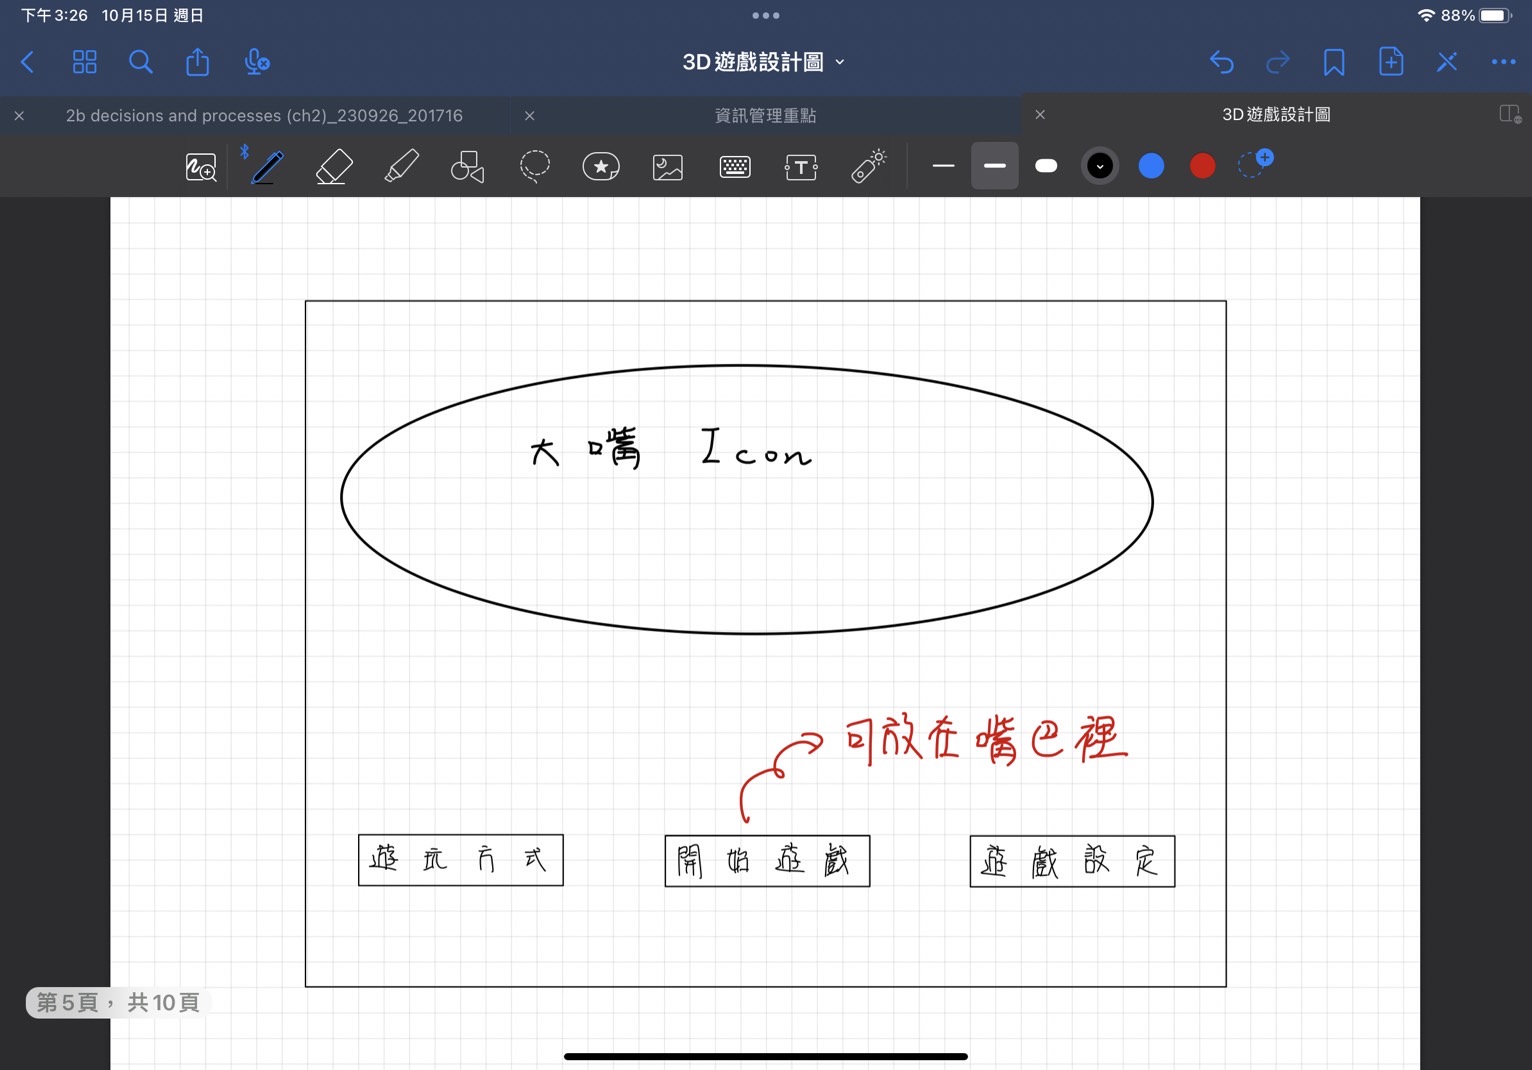 下午3:26 10月15日 週日
88%
3D遊戲設計圖
2b decisions and processes (ch2)_230926_201716
資訊管理重點
3D遊戲設計圖
大嘴 Icon
可放在嘴巴裡
遊玩方式
開始遊戲
遊戲設定
第5頁，共10頁